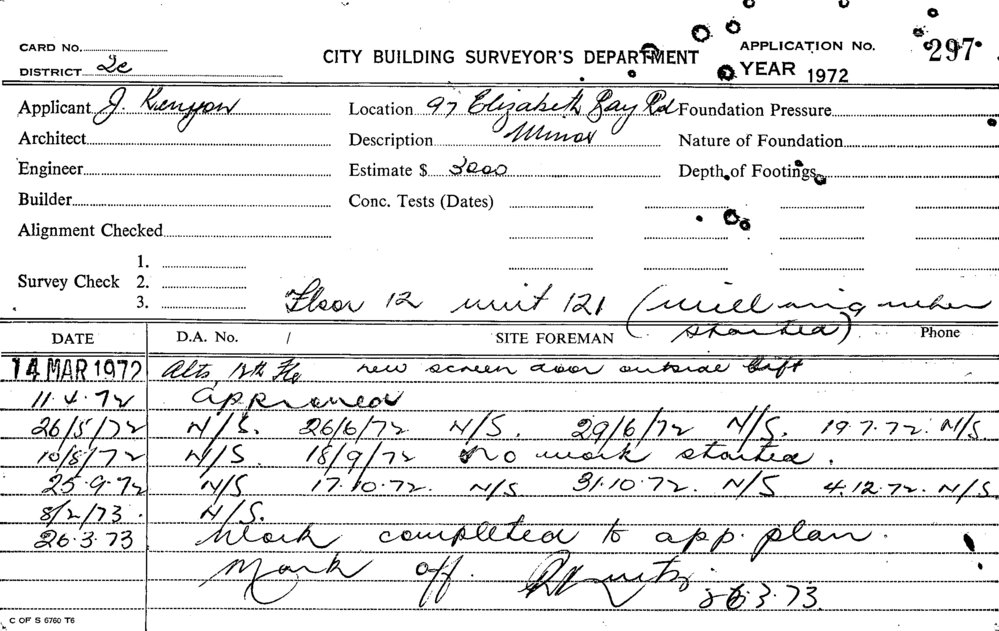 CARD NO.
CITY BUILDING SURVEYOR'S DEPARTMENT
APPLICATION No. 297
DISTRICT 2c
YEAR 1972
Applicant J. Kenyon Location 97 Elizabeth Bay Rd Foundation Pressure
Architect Description Minor Nature of Foundation
Engineer Estimate $ 3000 Depth of Footings
Builder Conc. Tests (Dates)
Alignment Checked
1.
Survey Check 2.
3.
Floor 12 unit 121 (will ring when
started)
DATE D.A. No. / SITE FOREMAN Phone
14 MAR 1972 Alts 12th Flr new screen door outside lift
11.4.72 approved
26/5/72 N/S. 26/6/72 N/S. 29/6/72 N/S. 19.7.72. N/S
10/8/72 N/S. 18/9/72 No work started.
25.9.72 N/S 17.10.72. N/S 31.10.72. N/S 4.12.72. N/S.
8/2/73. N/S.
26.3.73 Work completed to app. plan.
Mark off. 26.3.73.
C OF S 6760 T6